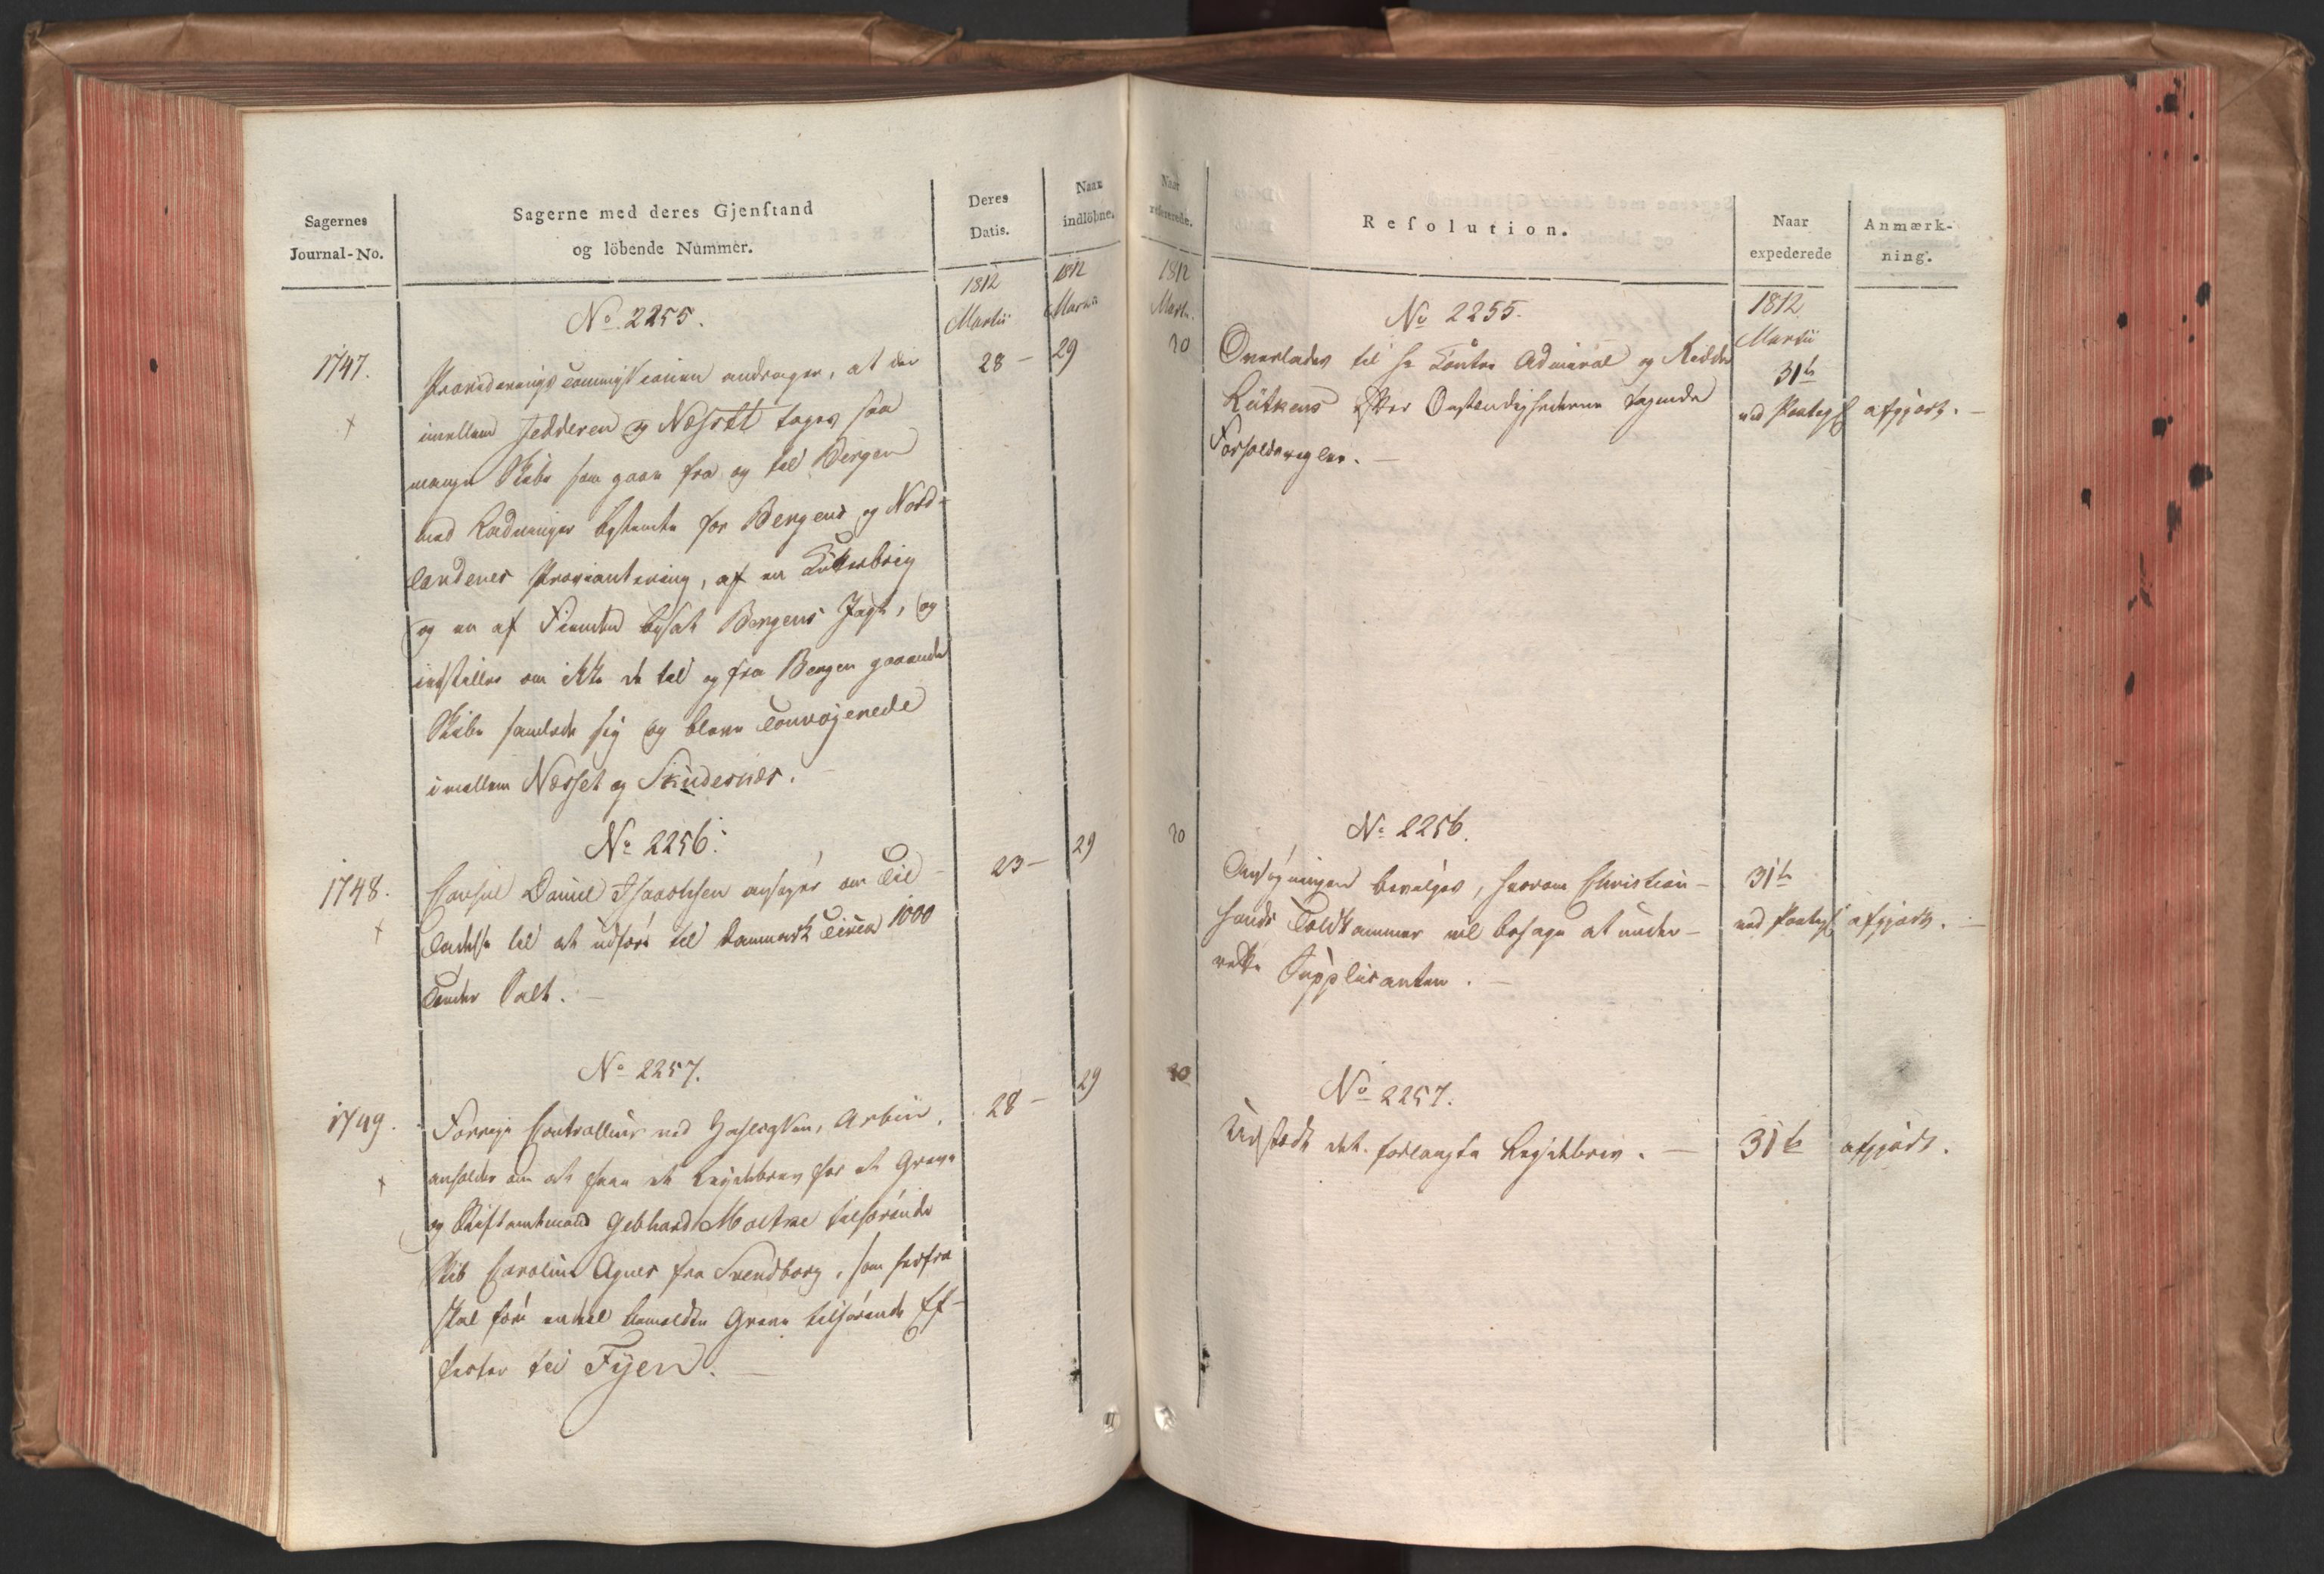 Sagernes
Journal-No.
Sagerne med deres Gjenſtand
og löbende Nummer.
Deres
Datis.
Naar
indlöbne.
1812
Martii
1812
Martii
No 2255.
1747.
Provideringscommissionen andrager, at der
28 –
29
imellem Jedderen og Næsset tages saa
mange Skibe som gaae fra og til Bergen
med Ladninger bestemte for Bergens og Nord-
landenes Proviantering, af en Kutterbrig
og en af Fienden besat Bergens Jagt, og
indstiller om ikke de til og fra Bergen gaaende
Skibe samlede sig og bleve Convojerede
imellem Næsset og Skudesnæs.
No 2256.
1748.
Consul Daniel Isaachsen ansøger om Til-
23 –
29
ladelse til at udføre til Danmark Circa 1000
Tønder Salt. –
No 2257.
1749.
Forrige Controlleur ved , Arbin,
28 –
29
anholder om at faae et Leydebrev for et Greve
og Stiftamtmand Gebhard Moltke tilhørende
Skib Caroline Agnes fra Svendborg, som herfra
skal føre endeel bemeldte Greve tilhørende Ef-
fecter til Fyen. –
Naar
refererede.
Reſolution.
Naar
expederede
Anmærk-
ning.
1812
Martii
1812
Martii
No 2255.
30
Overlades til Hr Contre Admiral og Ridder
Lütkens efter Omstændighederne tagende
Forholdsregler. –
31te
ved Paategn
afgjort. –
No 2256.
30
Ansøgningen bevilges, hvorom Christian-
sands Toldkammer vil behage at under-
rette Supplicanten. –
31te
ved Paategn
afgjort. –
No 2257.
30
Udstædt det forlangte Leydebrev. –
31te
afgjort.